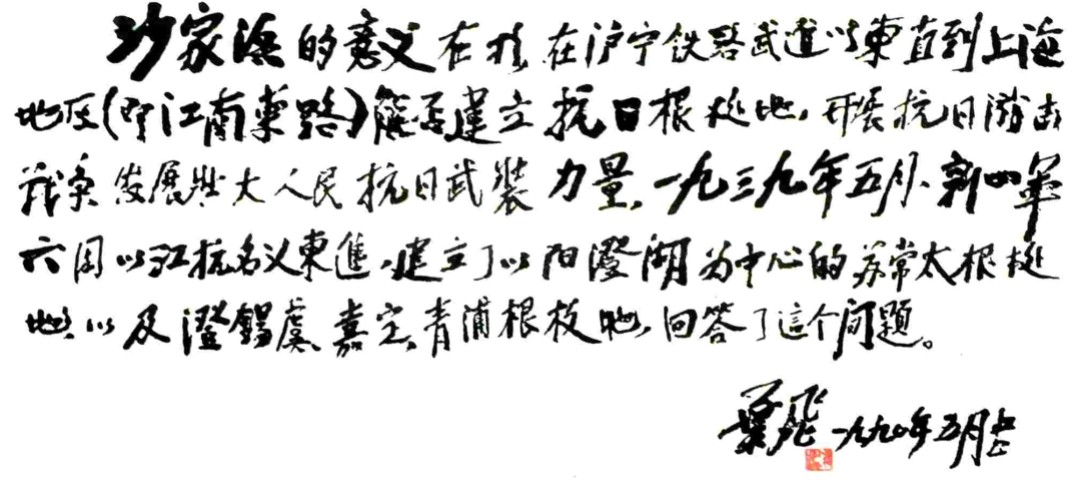 沙家浜的意义在於在沪宁铁路武進以東直到上海
地区(即江南東路)能否建立抗日根据地,开展抗日游击
战争发展壮大人民抗日武装力量,一九三九年五月、新四軍
六团以江抗名义東進,建立了以阳澄湖为中心的苏常太根据
地,以及澄锡虞、嘉定、青浦根据地,回答了這个问题。
葉飛 一九九〇年五月